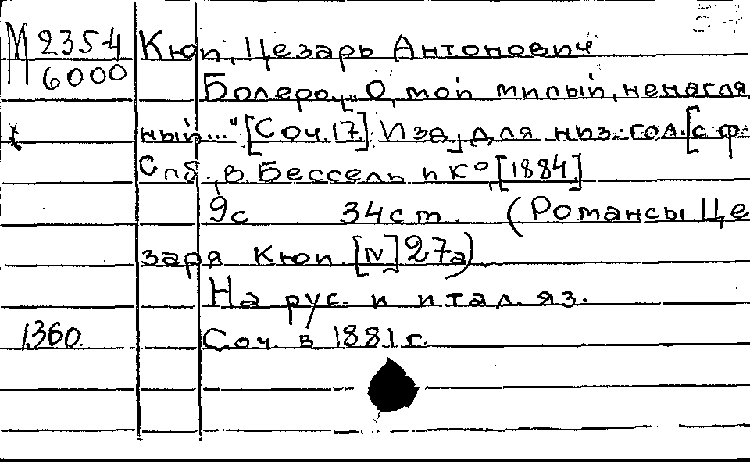 М 235-4 Кюи, Цезарь Антонович
6000 Болеро „О, мой милый, ненагля
ный..." [Соч. 17] Изд. для низ. гол. [с ф-
Спб., В. Бессель и Кº, [1884]
9с 34 ст. (Романсы Це
заря Кюи. [N] 27а)
На рус. и итал. яз.
1360 Соч. в 1881 г.